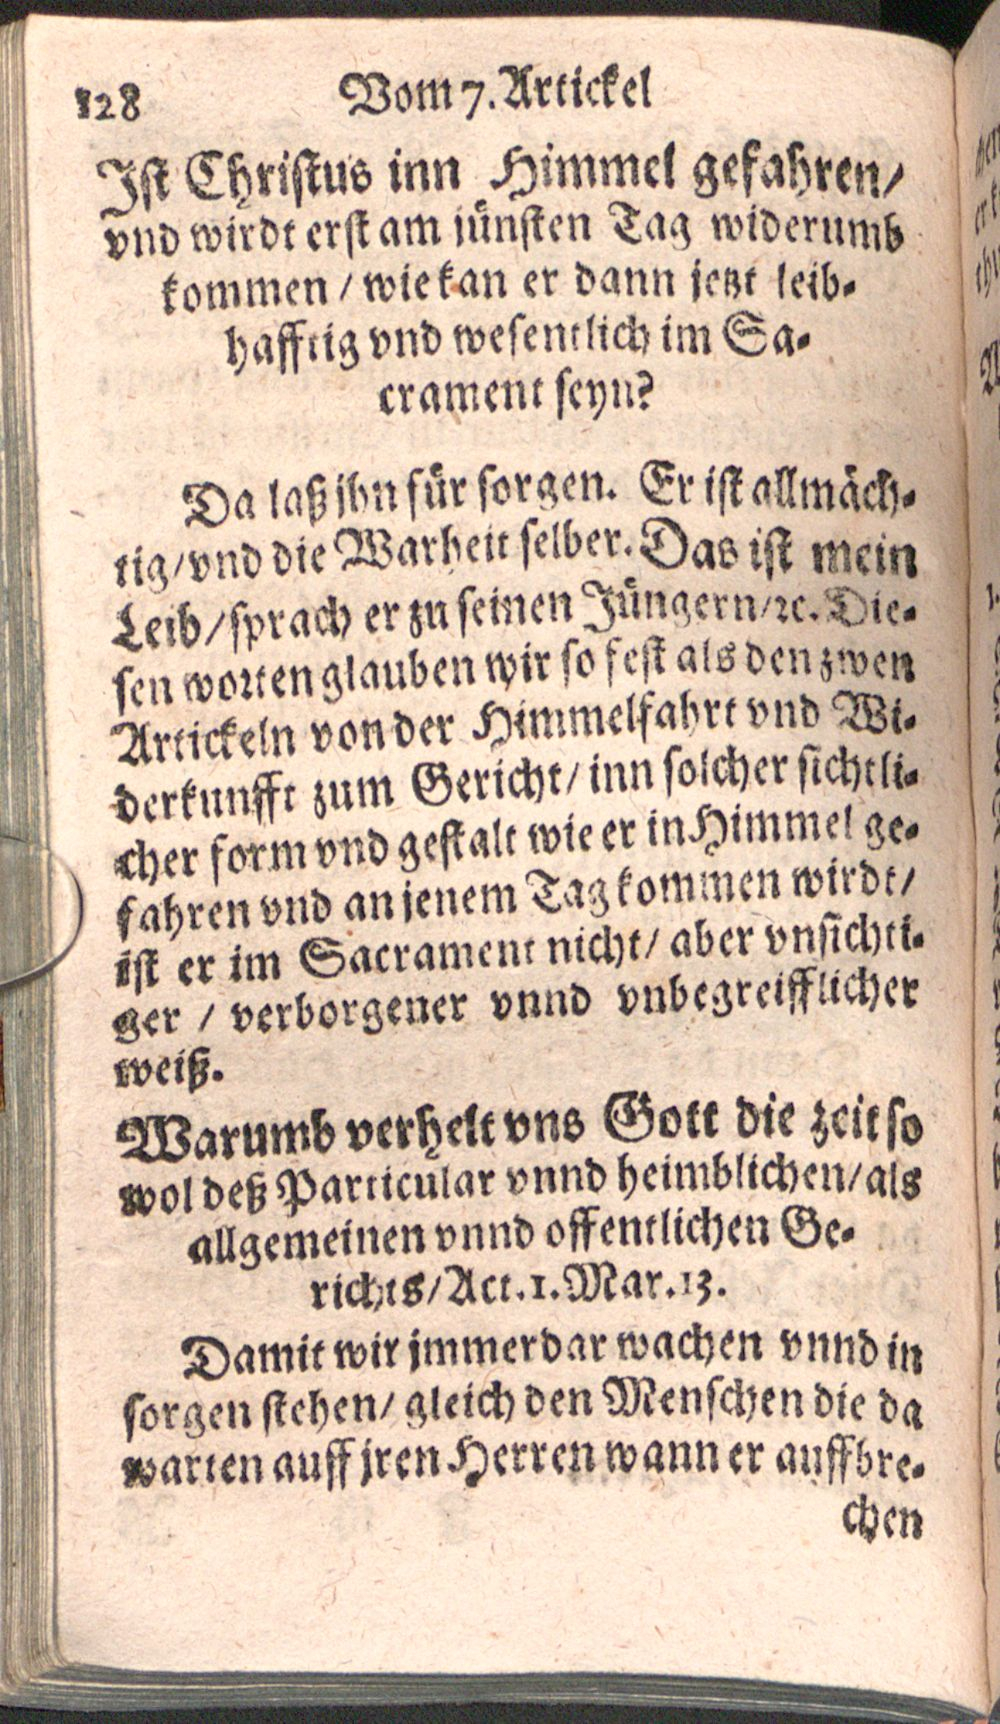 128 Vom 7. Artickel
Ist Christus inn Himmel gefahren/
vnd wirdt erst am jünsten Tag widerumb
kommen / wie kan er dann jetzt leib-
hafftig vnd wesentlich im Sa-
crament seyn?
Da laß jhn für sorgen. Er ist allmäch-
tig/ vnd die Warheit selber. Das ist mein
Leib/ sprach er zu seinen Jüngern/ ꝛc. Die-
sen worten glauben wir so fest als den zwen
Artickeln von der Himmelfahrt vnd Wi-
derkunfft zum Gericht/ inn solcher sichtli-
cher form vnd gestalt wie er in Himmel ge-
fahren vnd an jenem Tag kommen wirdt/
ist er im Sacrament nicht/ aber vnsichti-
ger / verborgener vnnd vnbegreifflicher
weiß.
Warumb verhelt vns Gott die zeit so
wol deß Particular vnnd heimblichen/ als
allgemeinen vnnd offentlichen Ge-
richts/ Act. 1. Mar. 13.
Damit wir jmmerdar wachen vnnd in
sorgen stehen/ gleich den Menschen die da
warten auff jren Herren wann er auffbre-
chen